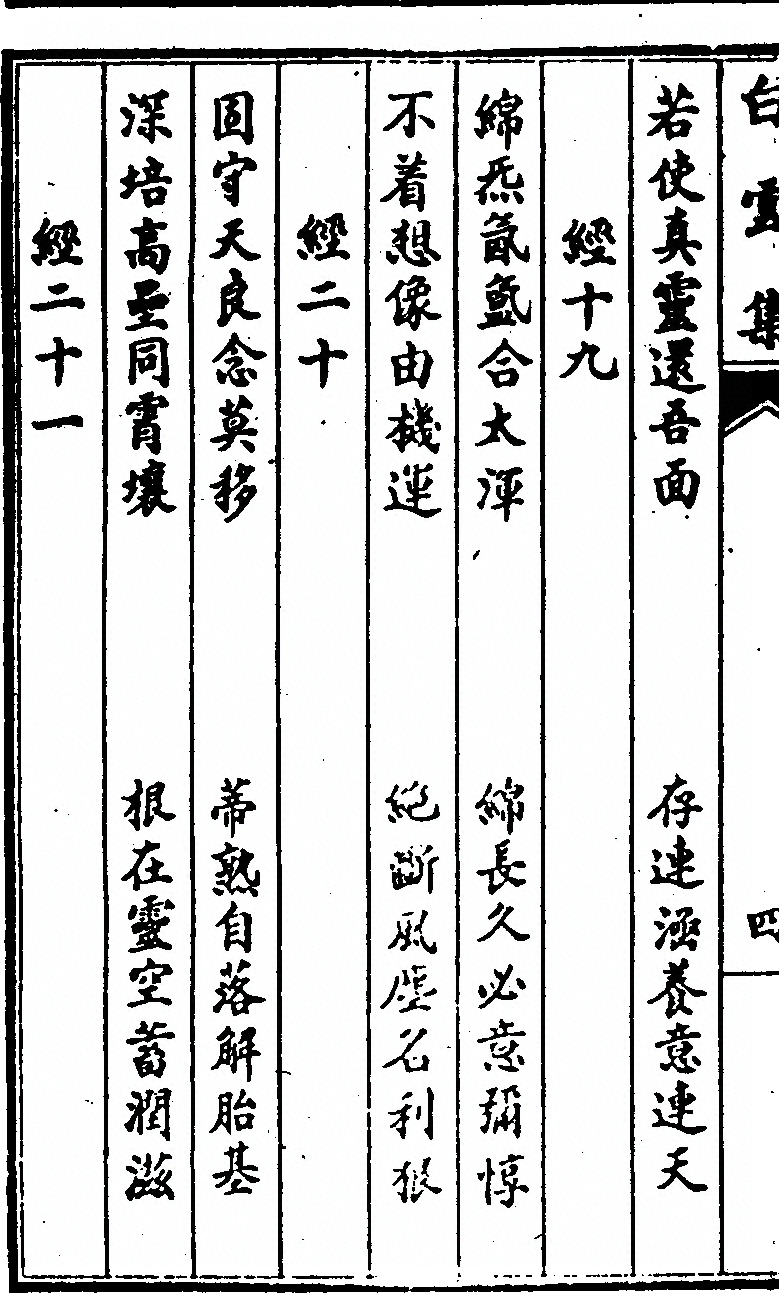 白雲集
四
若使真靈還吾面　存連涵養意連天
經十九
綿炁氤氳合太渾　綿長久必意彌惇
不着想像由機運　絕斷風塵名利狠
經二十
固守天良念莫移　蒂熟自落解胎基
深培高垔同霄壤　根在靈空蓄潤滋
經二十一